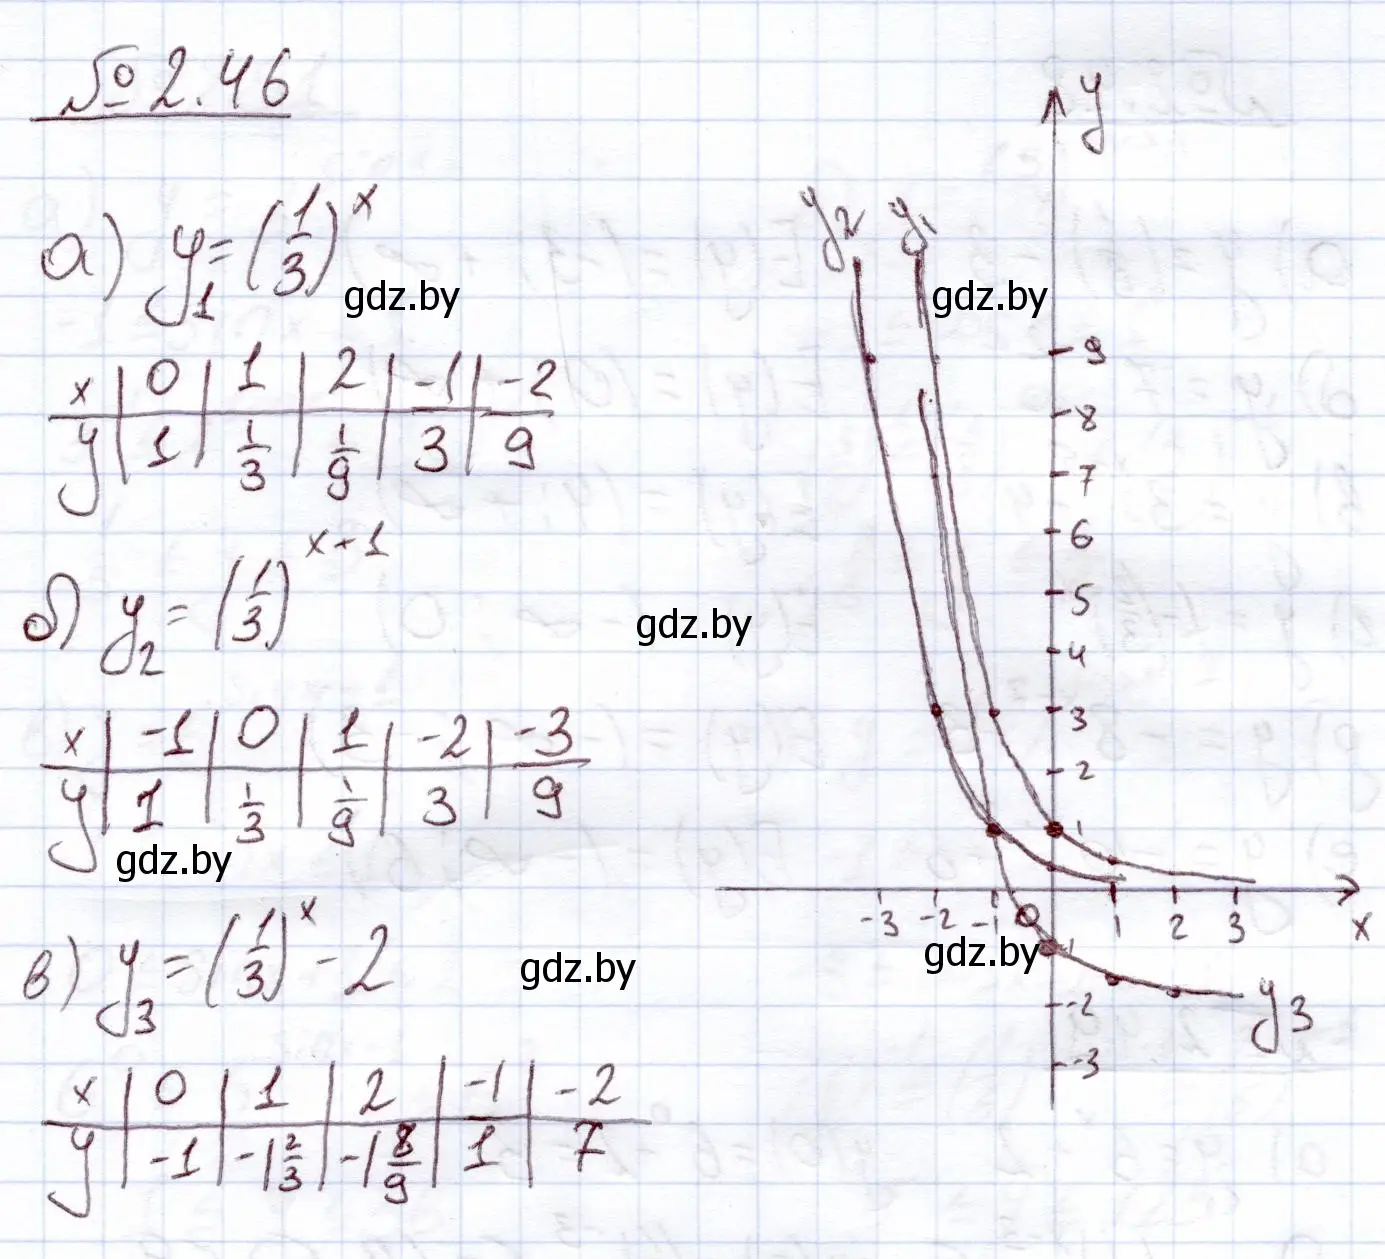 № 2.46
а) y₁ = (1/3)^x
gdz.by
x | 0 | 1 | 2 | -1 | -2
y | 1 | 1/3 | 1/9 | 3 | 9
б) y₂ = (1/3)^(x+1)
x | -1 | 0 | 1 | -2 | -3
y | 1 | 1/3 | 1/9 | 3 | 9
gdz.by
в) y₃ = (1/3)^x - 2
gdz.by
x | 0 | 1 | 2 | -1 | -2
y | -1 | -1 2/3 | -1 8/9 | 1 | 7
y
y₂ y₁
gdz.by
9
8
7
6
5
gdz.by
4
3
2
1
-3 -2 -1 0 1 2 3 x
gdz.by
-1
-2
y₃
-3